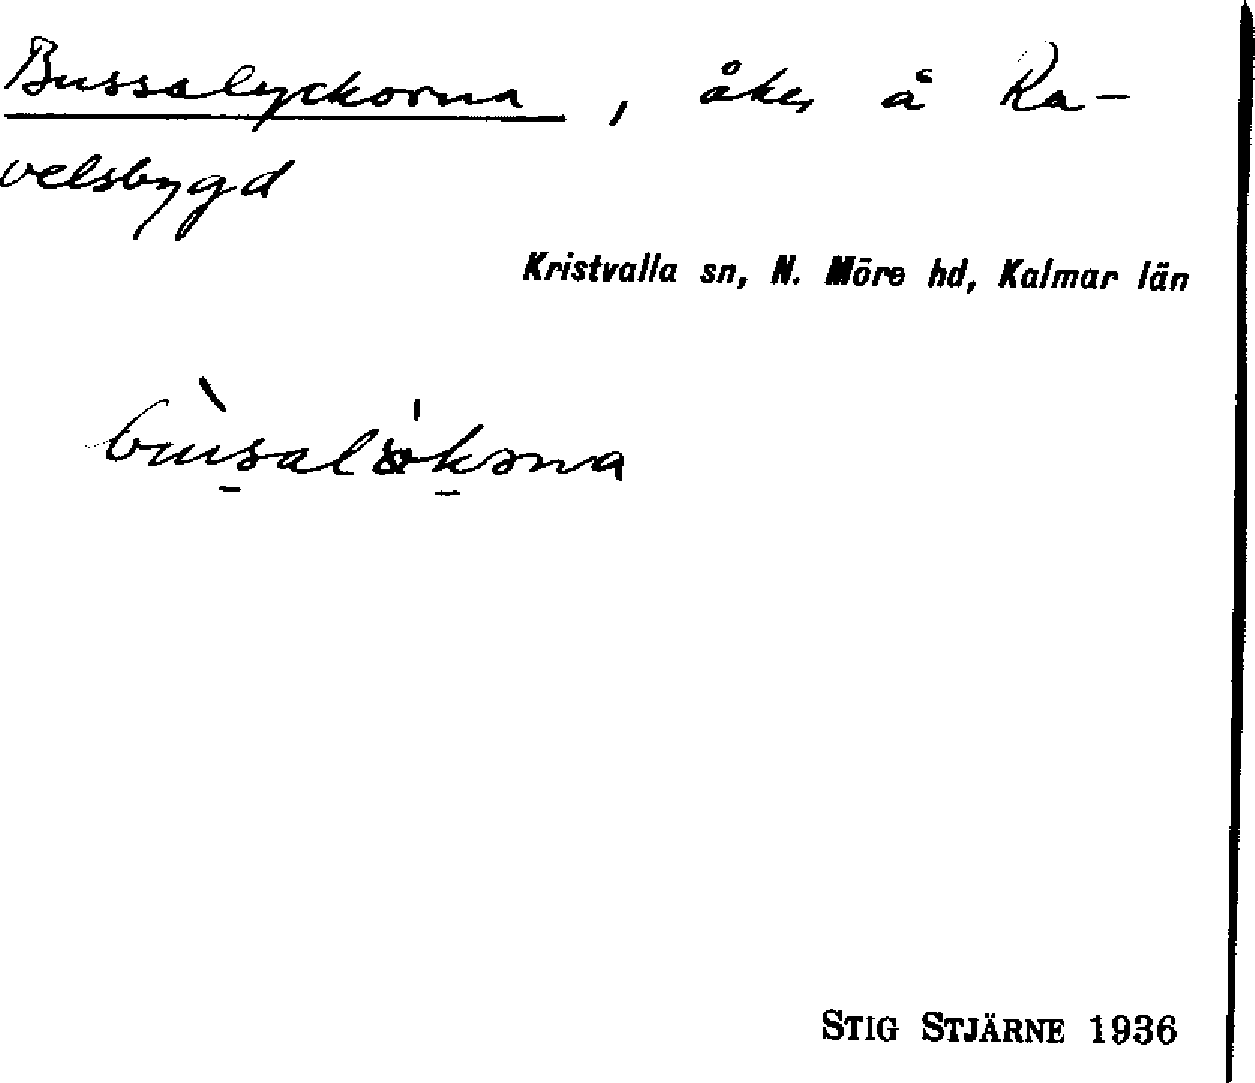 Bussalyckorna, åker å Ra-
velsbygd
Kristvalla sn, N. Möre hd, Kalmar län
STIG STJÄRNE 1936